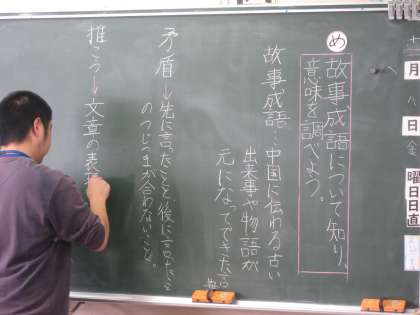 十月八日金曜日日直
め
故事成語について知り、
意味を調べよう。
故事成語…中国に伝わる古い
出来事や物語が
元になってできた言
矛盾→先に言ったことと後に言ったこと
のつじつまが合わないこと。
推こう→文章の表